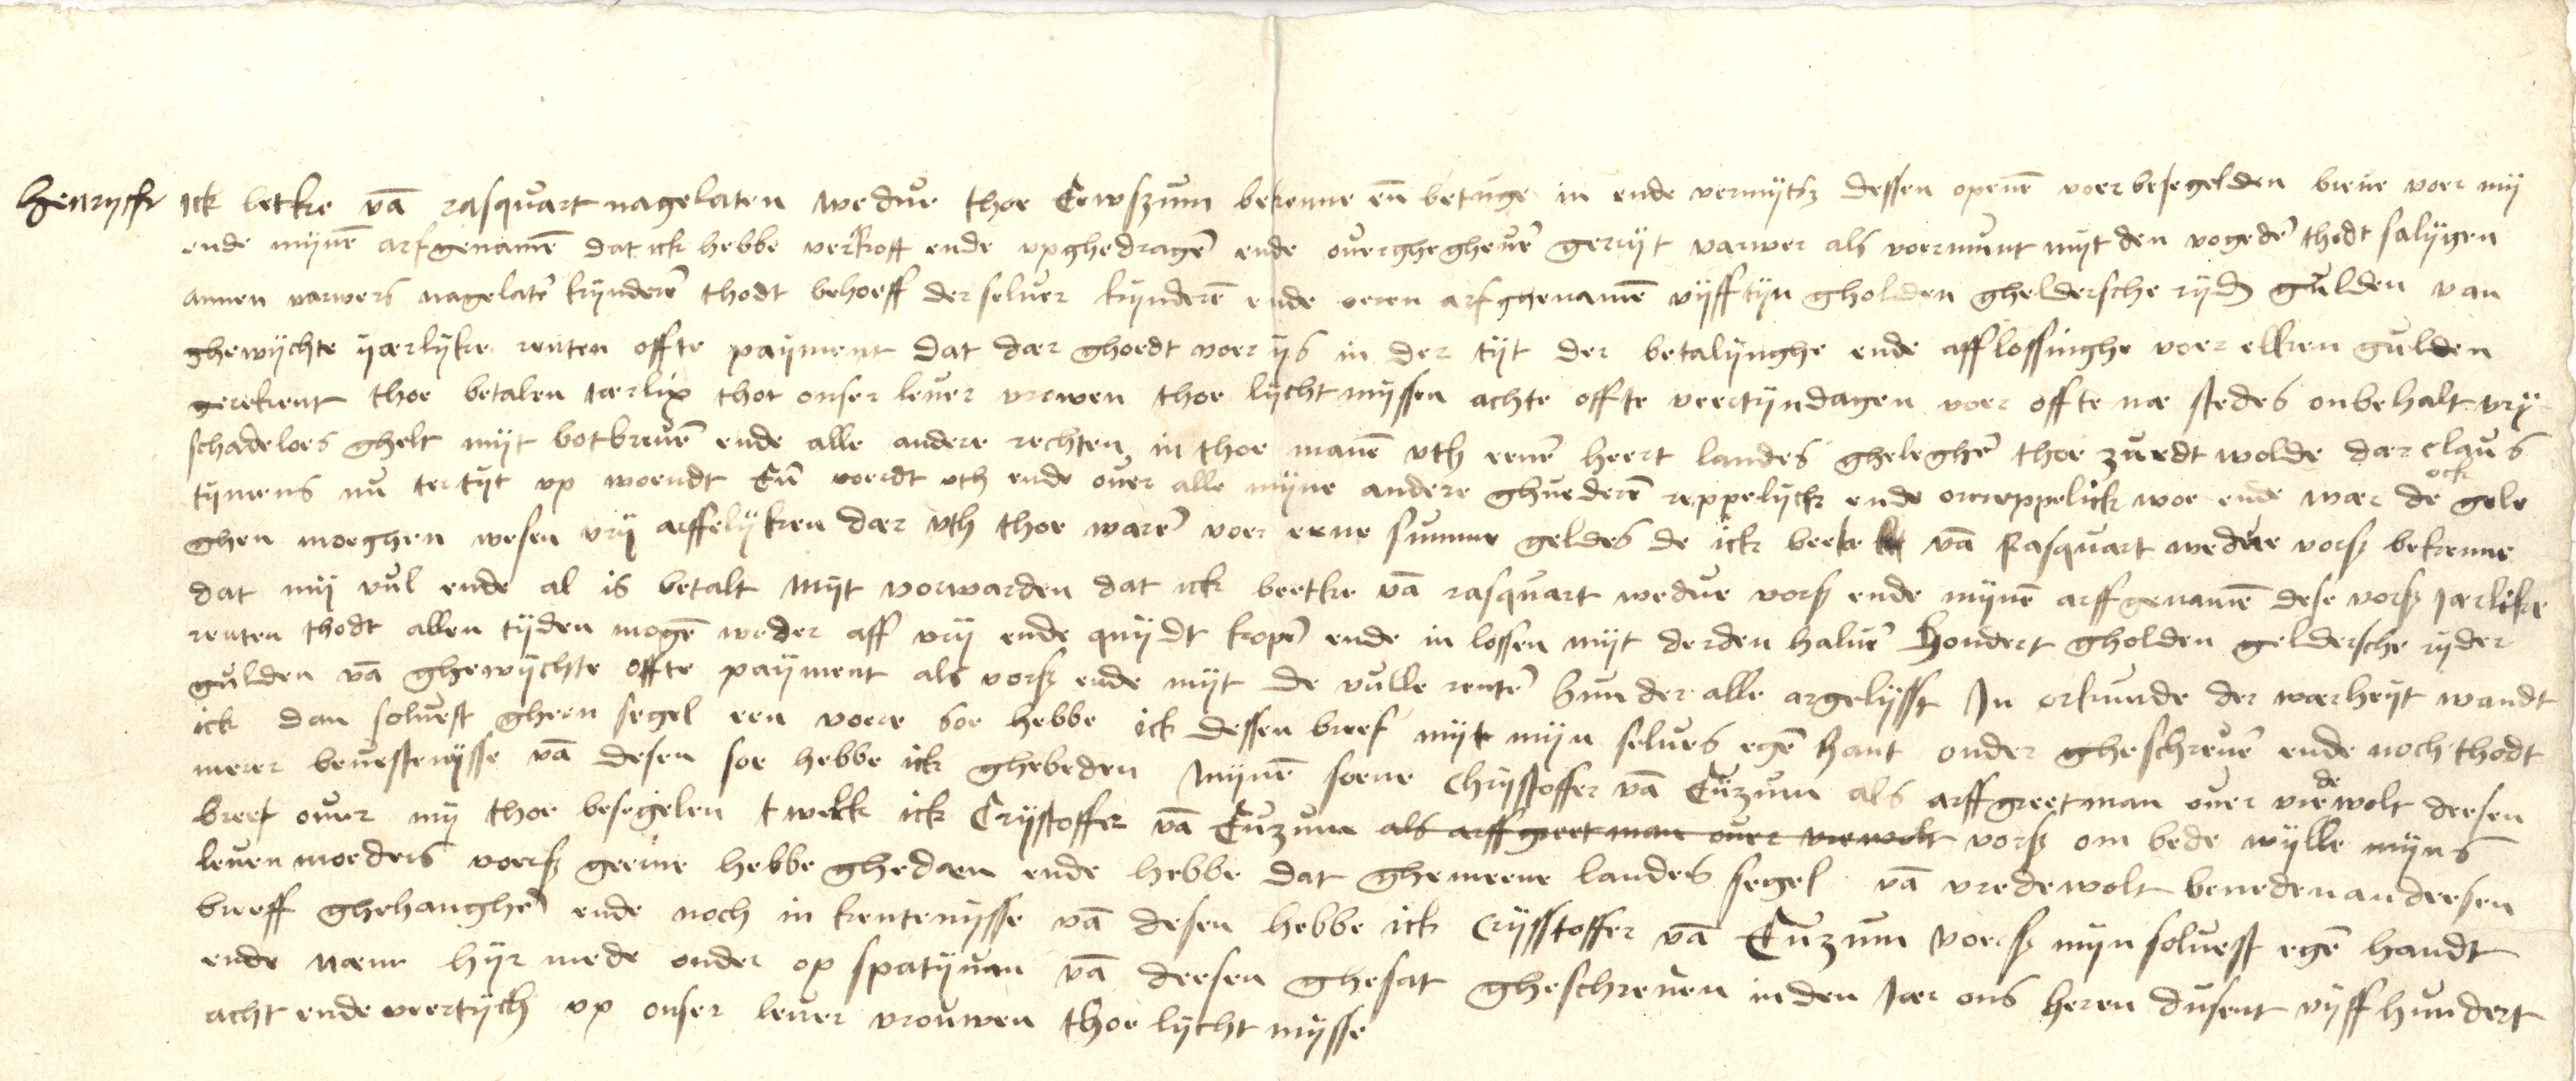 henryck Ick betke vā rasquart nagelaten wedue thoe Ewszum bekenne eñ betuge in ende vermytsz dessen openē voer besegelden breue voer my
ende mynē arfgenamē dat ick hebbe verkoft ende vpghedragē ende ouerghegheuē gerryt varwer als voermunt myt den vogedē thodt salygen
annen varwers nagelatē kynderē thodt behoeff der seluer kynderē ende oeren arfghenamē vyfftyn gholden gheldersche ryd gulden van
ghewychte yaerlyke renten offte payment dat daer ghoedt voer ys in der tyt der betalynghe ende afflossinghe voer elken gulden
gerekent thoe betalen iaerlix thot onser leuer vrowen thoe lychtmyssen achte offte veertyndagen voer offte nae stedes onbehalt vry
schadeloes ghelt myt botbreuē ende alle andere rechten in thoe manē vth eenē heert landes gheleghē thoe zuedtwolde daer claus
tymens nu tertyt vp woendt Eñ voerdt vth ende ouer alle myne andere ghuederē reppelyck ende onreppelick woe ende waer de ock gele
ghen moeghen wesen vry arffelyken daer vth thoe warē voer eene summe geldes de ick beetke vā Rasquart wedue vorsz bekenne
dat my vul ende al is betalt Myt vorwarden dat ick beetke vā rasquart wedue vorsz ende mynē arffgenamē dese vorsz iaerlike
renten thodt allen tyden mogē weder aff vry ende quydt kopē ende in lossen myt derden haluē hondert gholden geldersche ryder
gulden vā ghewychte offte payment als vorsz ende myt de vulle rentē Sunder alle argelysst In orkunde der waerheyt wandt
ick dan soluest gheen segel een voere soe hebbe ick dessen breef myt myn selues egē hant onder gheschreuē ende noch thodt
merer beuestenysse vā desen soe hebbe ick ghebeden mynē soene Chrystoffer vā Euzum als arffgreetman ouer vredewolt deesen
breef ouer my thoe besegelen twelck ick Crystoffer vā Euzum als arffgreetman ouer vrewolt vorsz om bede wylle myns
leuen moeders voersz geerne hebbe ghedaen ende hebbe dat ghemeene landes segel vā vredewolt beneden an deesen
breeff ghehanghē ende noch in kentenysse vā desen hebbe ick Crysstoffer vā Euzum voersz myn soluest egē handt
ende naem hyr mede onder op spatyum vā deesen ghesat gheschreuen in den Iaer ons heren dusent vyffhundert
acht ende veertych vp onser leuer vrouwen thoe lychtmysse